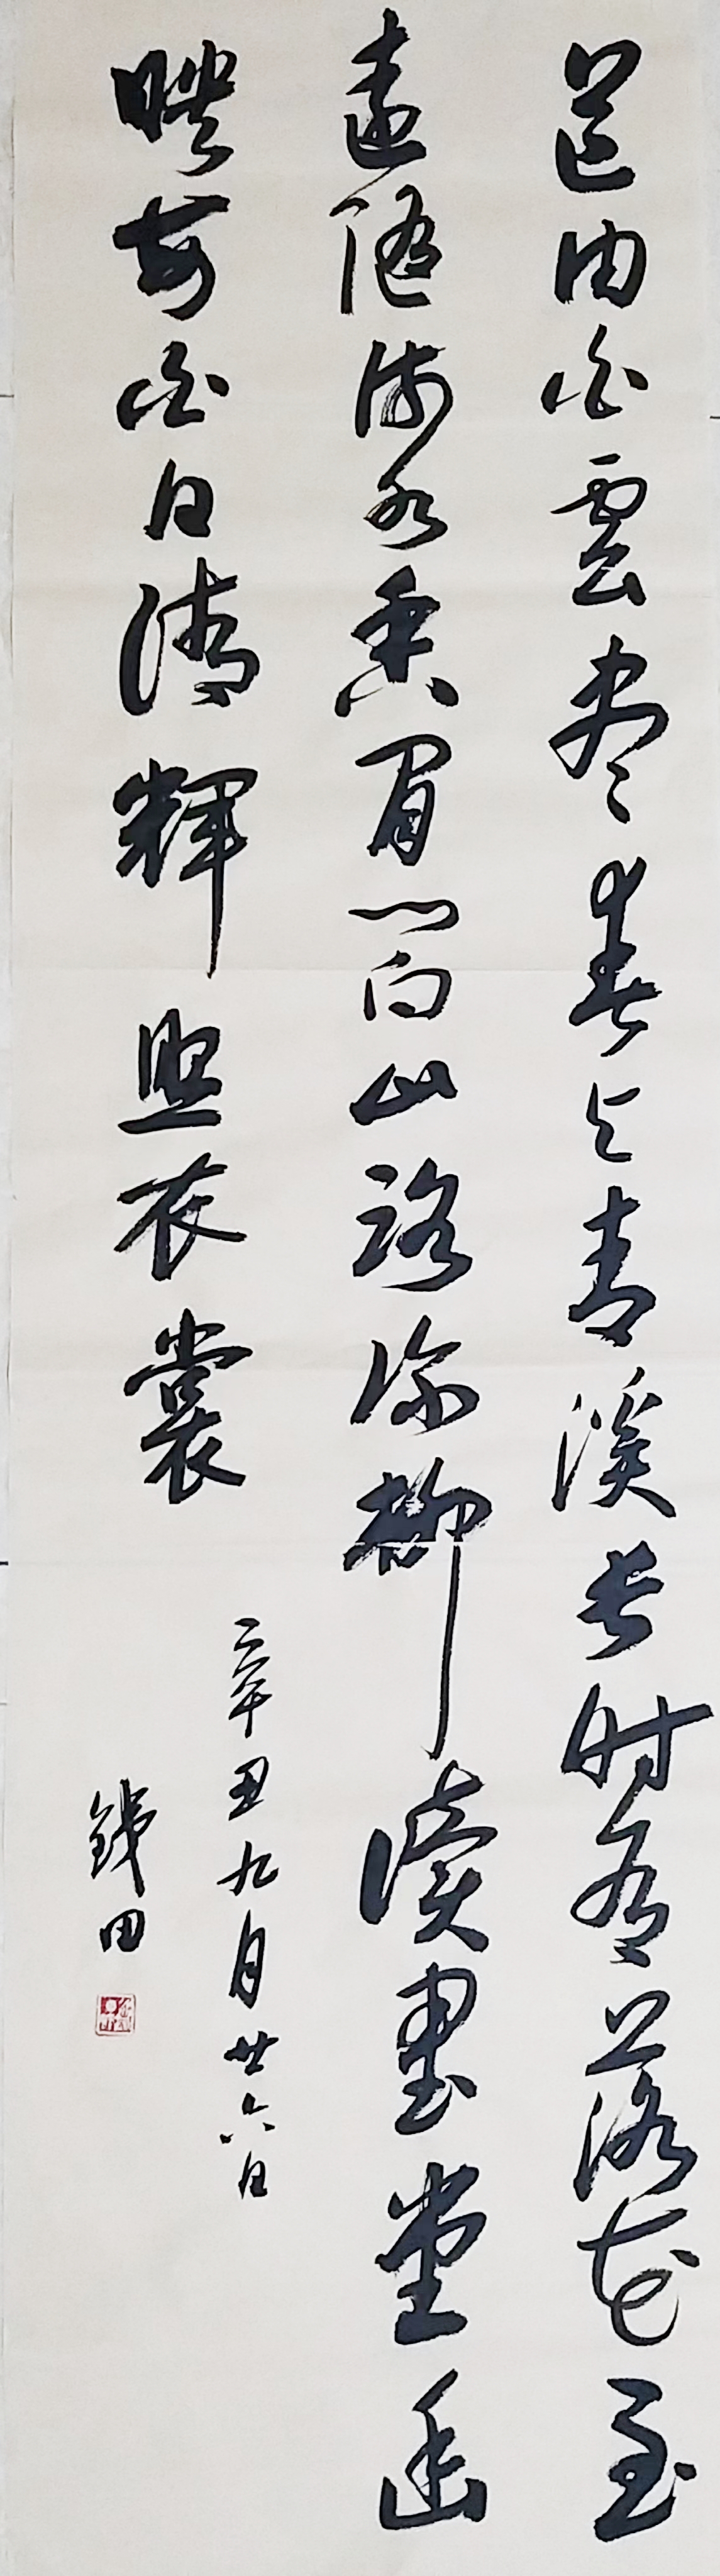 道由白雲盡春与青溪長时有落花至
遠隨流水香閒門向山路深柳讀書堂幽
映每白日清輝照衣裳
辛丑九月廿六日
田